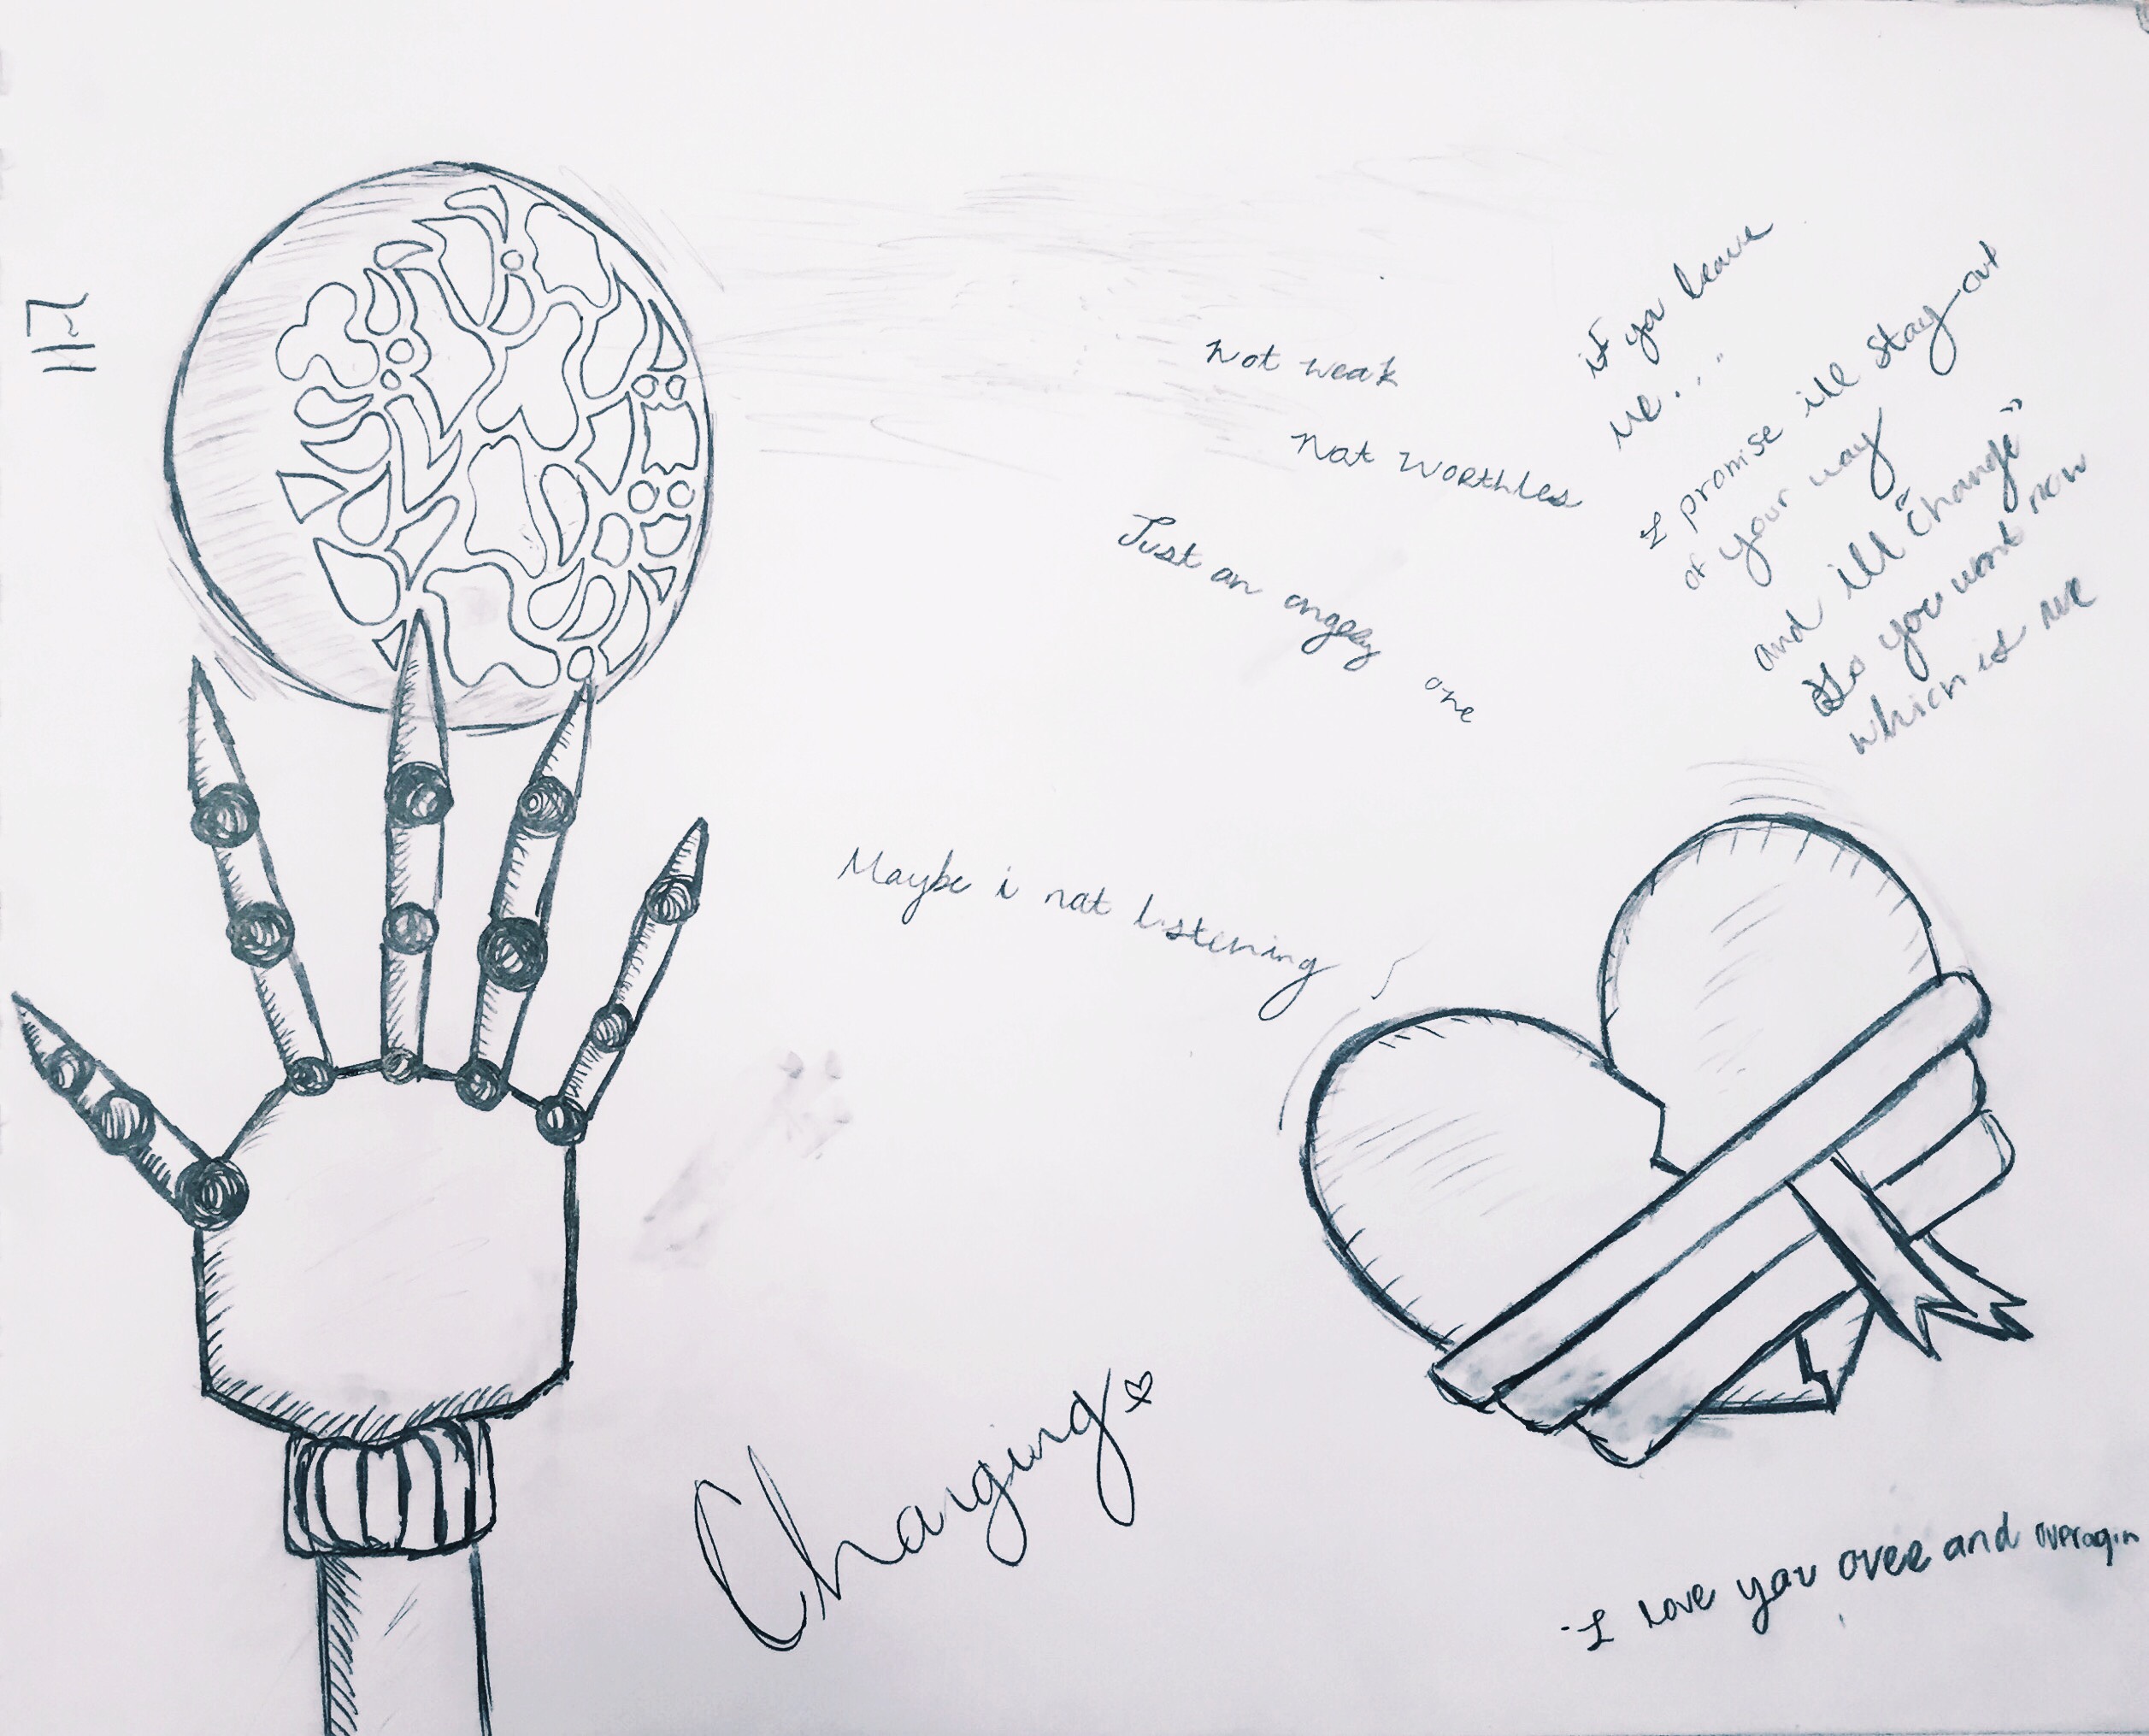 Not weak
Not worthles
Just an angery one
if you leave
me...
I promise ill stay out
of your way
and ill "change"
so you wont now
which is me
Maybe i not listening
Changing
-I love you over and overagin